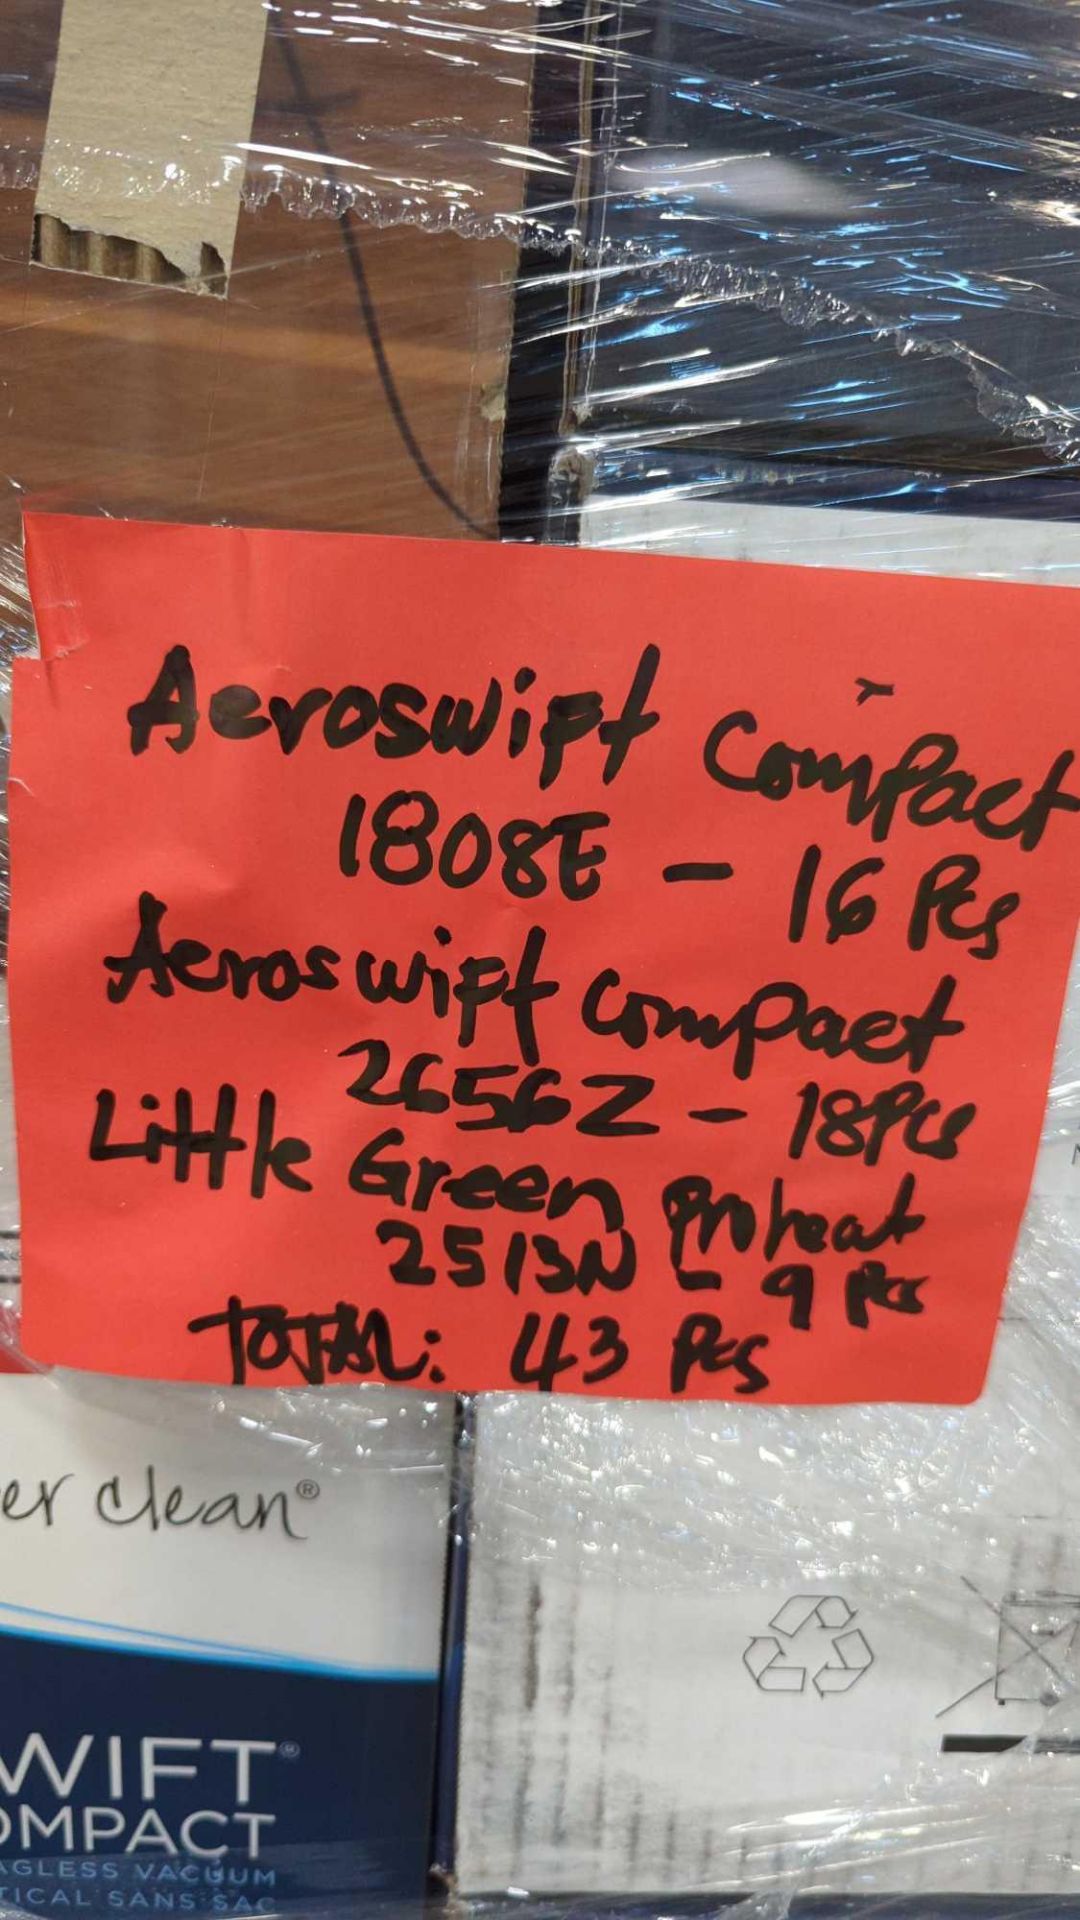 Aeroswift Compact
1808E - 16 Pcs
Aeroswift Compact
2656Z - 18Pcs
Little Green Proheat
2513N - 9 Pcs
TOTAL: 43 Pcs
er clean®
WIFT®
OMPACT
AGLESS VACUUM
TICAL SANS SAC